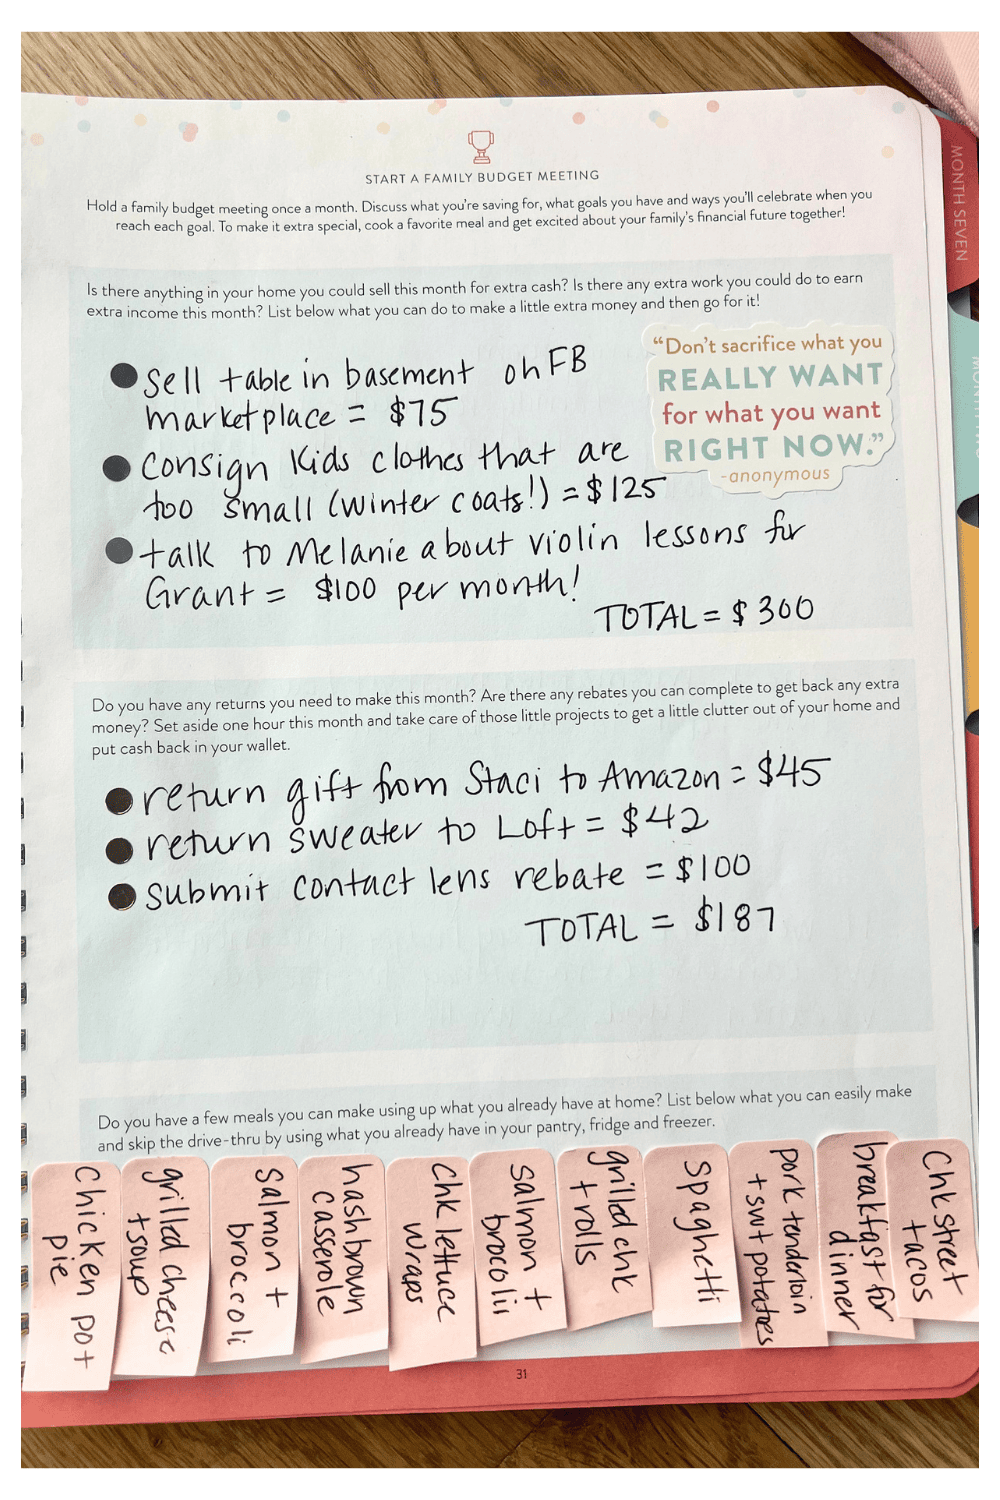 START A FAMILY BUDGET MEETING
Hold a family budget meeting once a month. Discuss what you're saving for, what goals you have and ways you'll celebrate when you
reach each goal. To make it extra special, cook a favorite meal and get excited about your family's financial future together!
MONTH SEVEN
Is there anything in your home you could sell this month for extra cash? Is there any extra work you could do to earn
extra income this month? List below what you can do to make a little extra money and then go for it!
"Don't sacrifice what you
REALLY WANT
for what you want
RIGHT NOW."
-anonymous
sell table in basement on FB
marketplace = $75
consign kids clothes that are
too small (winter coats!) = $125
talk to Melanie about violin lessons for
Grant = $100 per month!
TOTAL = $300
Do you have any returns you need to make this month? Are there any rebates you can complete to get back any extra
money? Set aside one hour this month and take care of those little projects to get a little clutter out of your home and
put cash back in your wallet.
return gift from Staci to Amazon = $45
return sweater to Loft = $42
submit contact lens rebate = $100
TOTAL = $187
Do you have a few meals you can make using up what you already have at home? List below what you can easily make
and skip the drive-thru by using what you already have in your pantry, fridge and freezer.
Chicken pot
pie
grilled cheese
+ soup
Salmon +
broccoli
hashbrown
casserole
Chk lettuce
wraps
salmon +
brocolii
grilled chk
+ rolls
Spaghetti
pork tenderloin
+ swt potatoes
breakfast for
dinner
Chk street
tacos
31